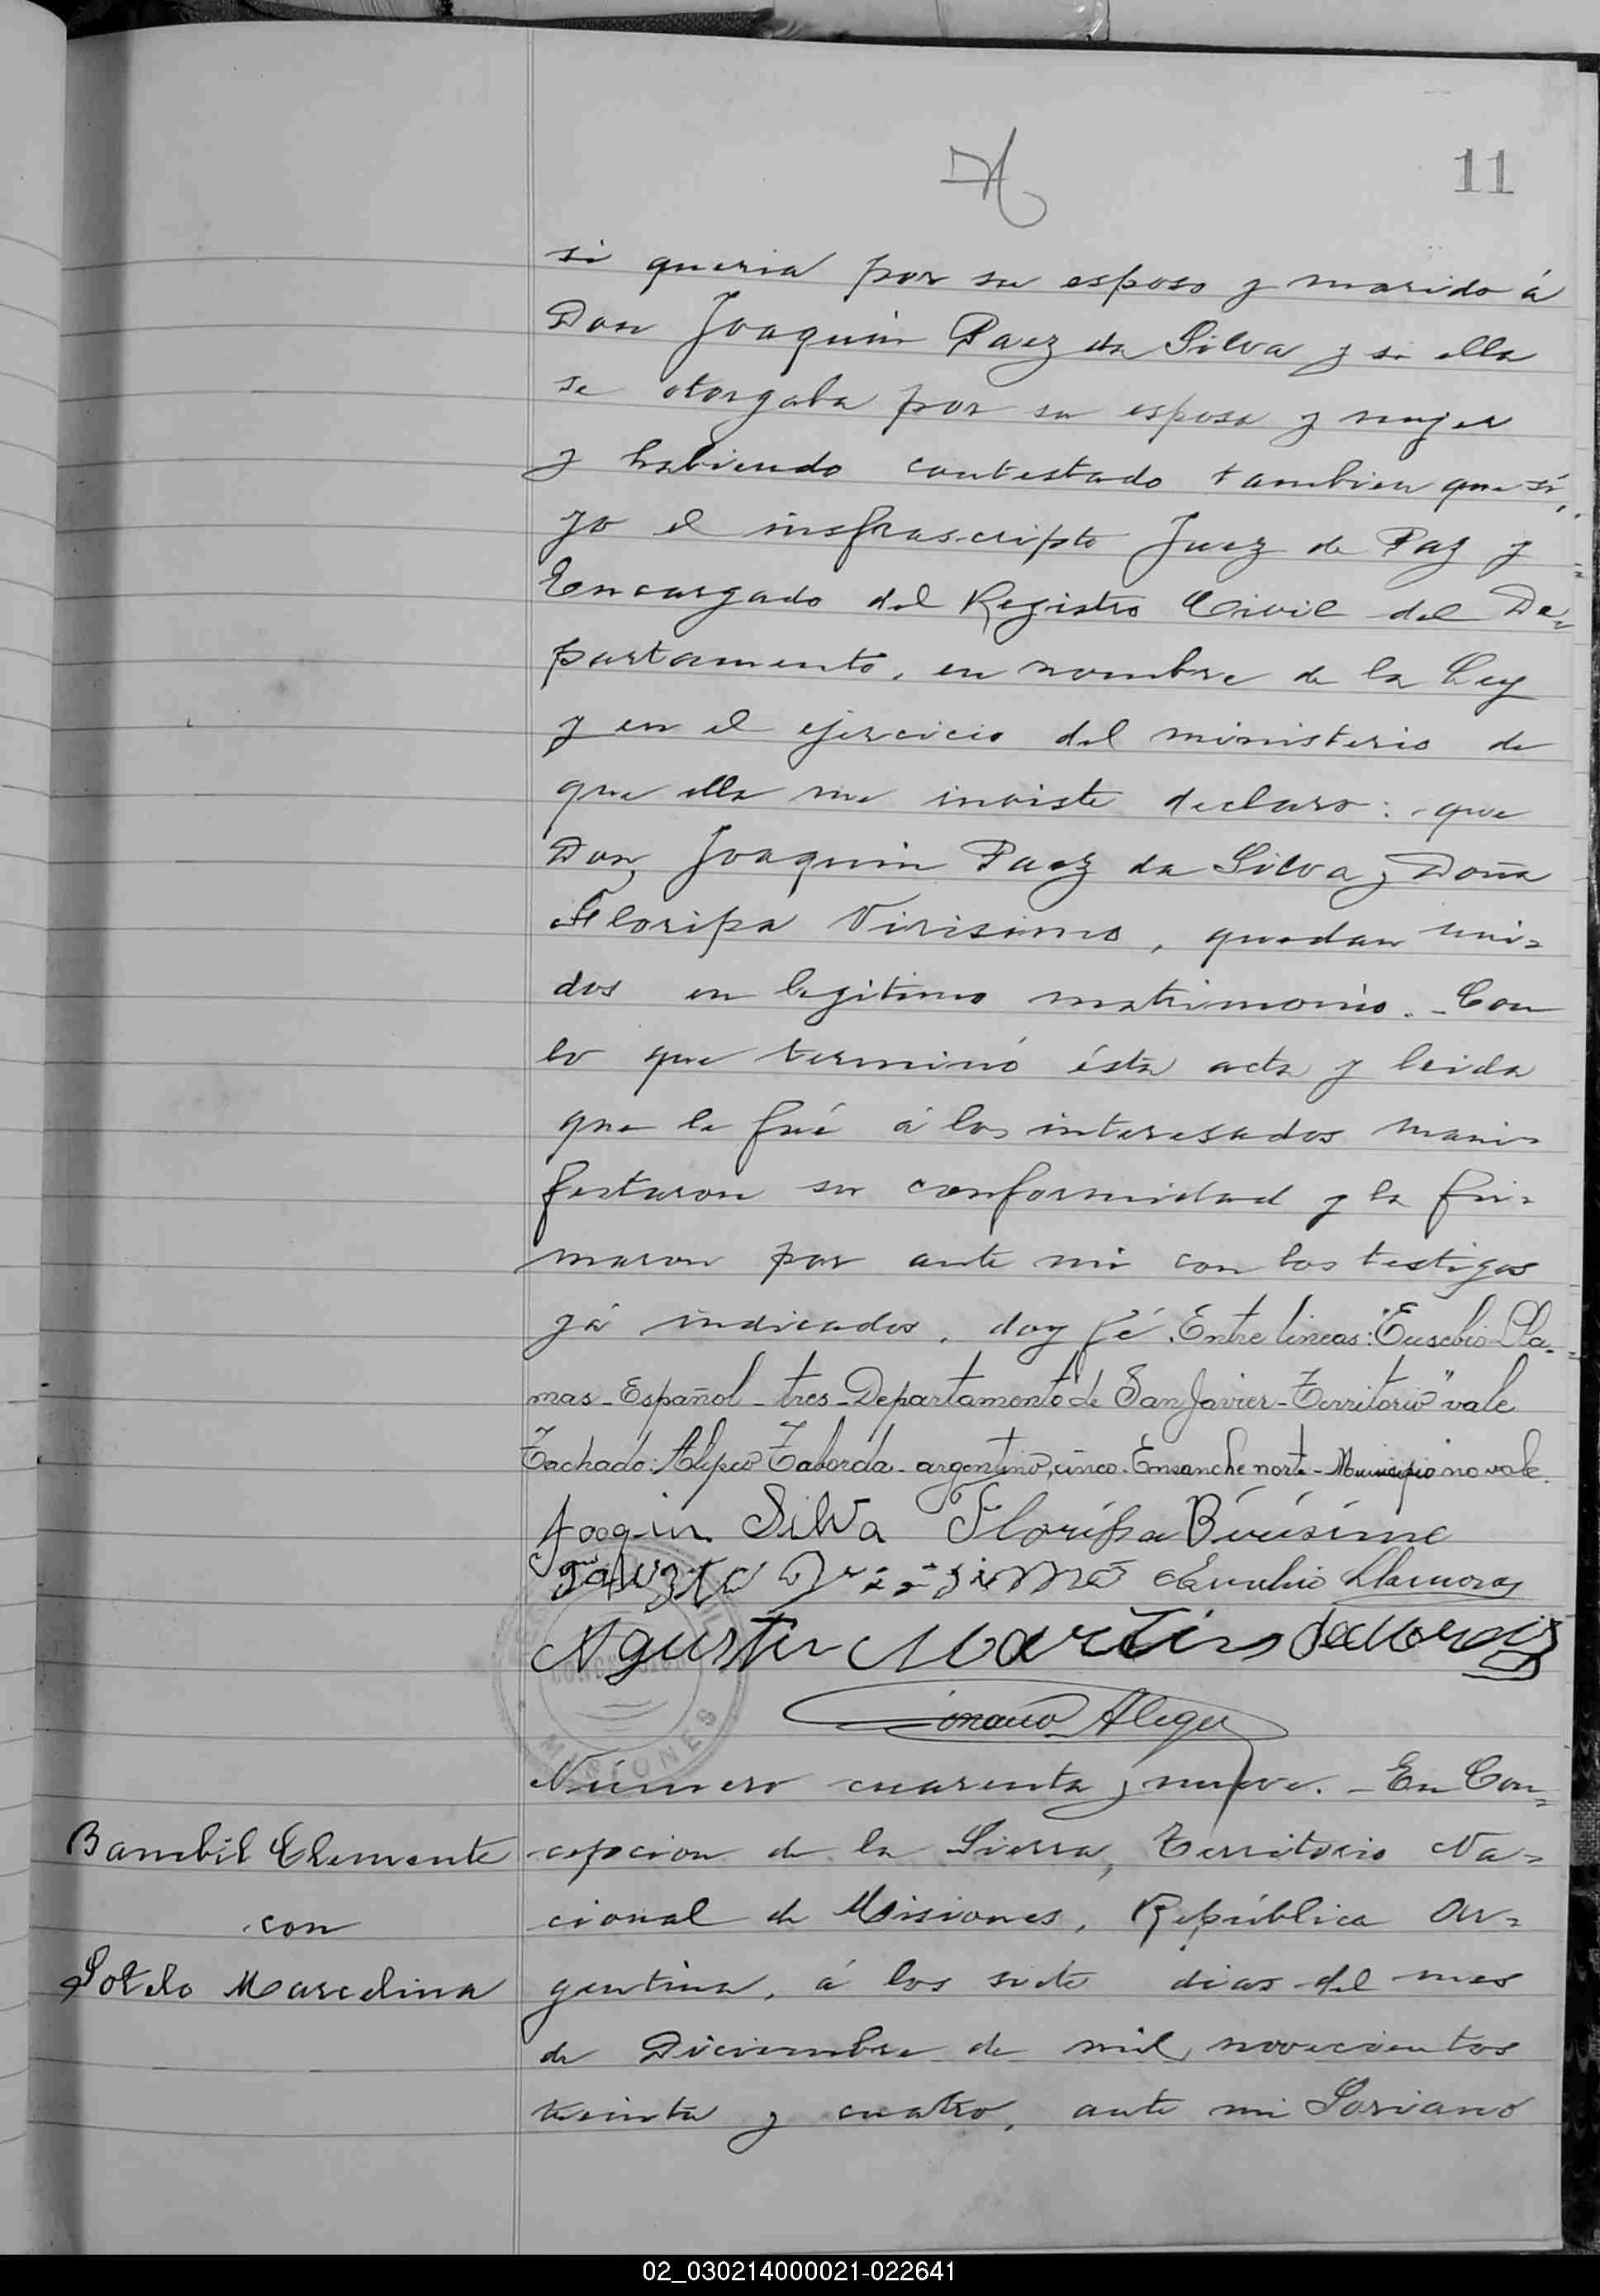 11
si queria por su esposo y marido á
Don Joaquin Paez da Silva y si ella
se otorgaba por su esposa y mujer
y habiendo contestado tambien que sí,
yo el insfrascripto Juez de Paz y
Encargado del Registro Civil del De-
partamento, en nombre de la Ley
y en el ejercicio del ministerio de
que ella me inviste declaro: que
Don Joaquin Paez da Silva y Doña
Floripa Virisimo, quedan uni-
dos en legitimo matrimonio. - Con
lo que terminó ésta acta y leida
que le fué á los interesados mani-
festaron su conformidad y la fir-
maron por ante mi con los testigos
yá indicados, doy fé. Entre lineas: "Eusebio Lla-
mas - Español - tres - Departamento de San Javier - Territorio" vale
Tachado: Alipio Taborda - argentino, cinco - Ensanche norte - Municipio no vale.
Joaquin Silva Floripa Birisimo
Eusebio Llamas
Agustin Martins
Soriano Aleger
CONCEPCION
MISIONES
Número cuarenta y nueve. - En Con-
Bambil Clemente
con
Sotelo Marcelina
cepcion de la Sierra, Territorio Na-
cional de Misiones, República Ar-
gentina, á los siete dias del mes
de Diciembre de mil novecientos
treinta y cuatro, ante mi Soriano
02_030214000021-022641